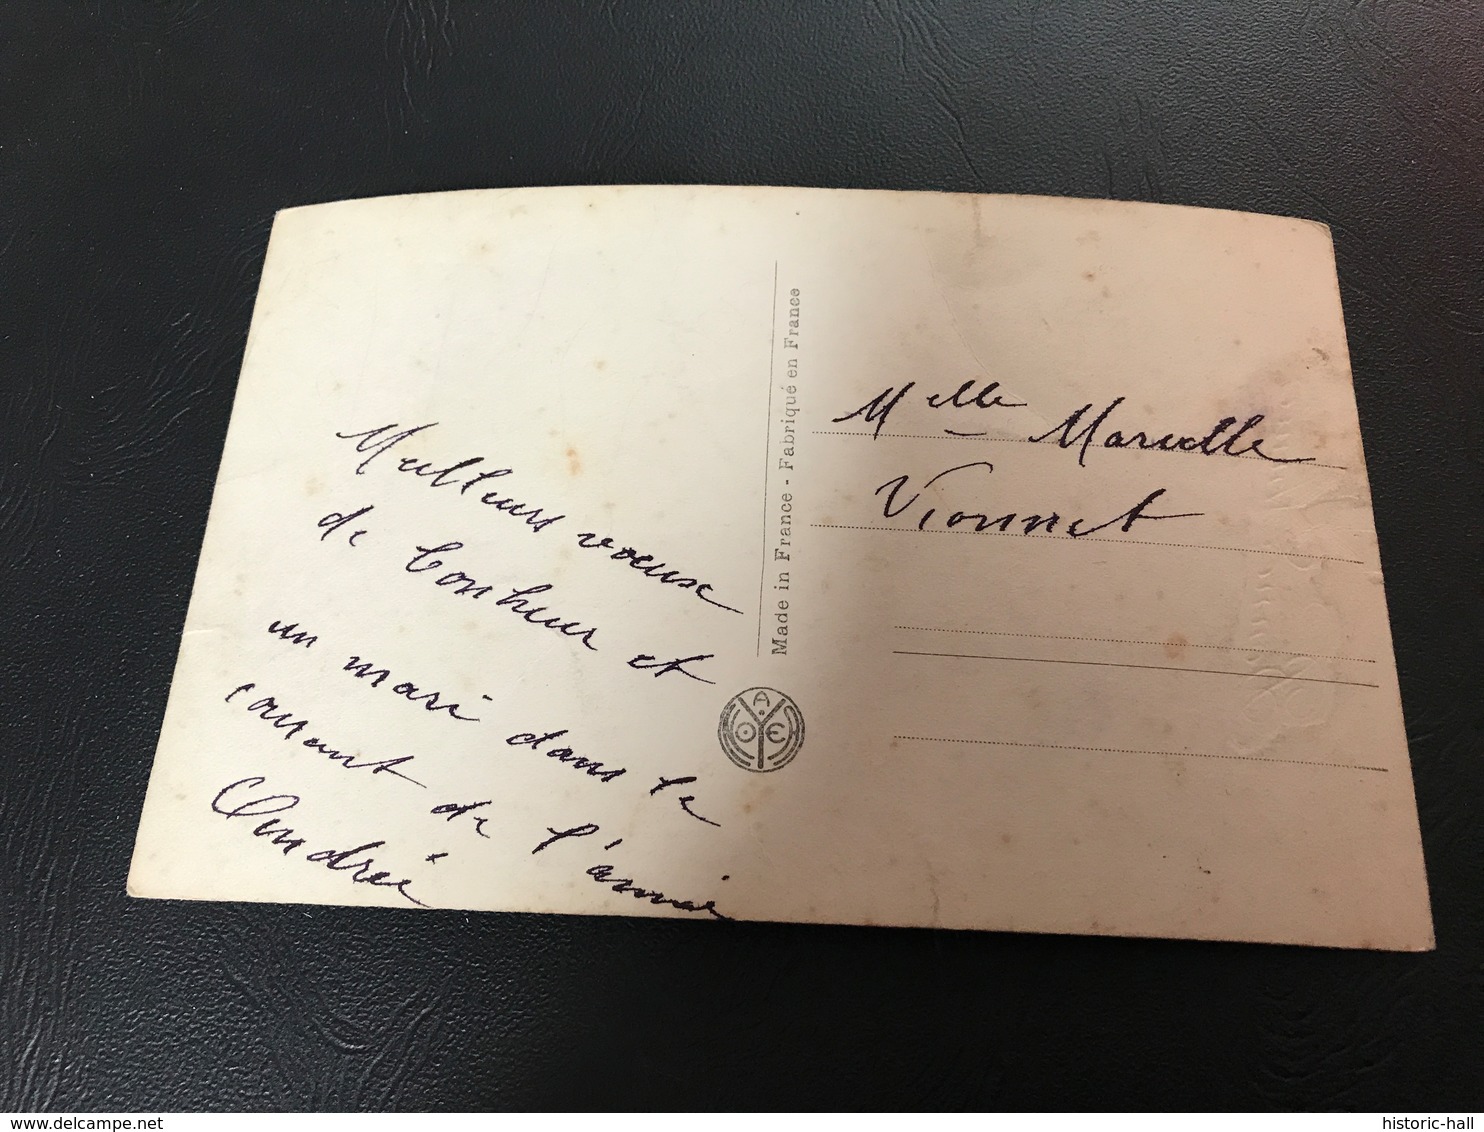 Meilleurs voeux
de bonheur et
un mari dans le
courant de l'année
Andrée
Made in France - Fabriqué en France
Melle Marcelle
Vionnet
delcampe.net
historic-hall